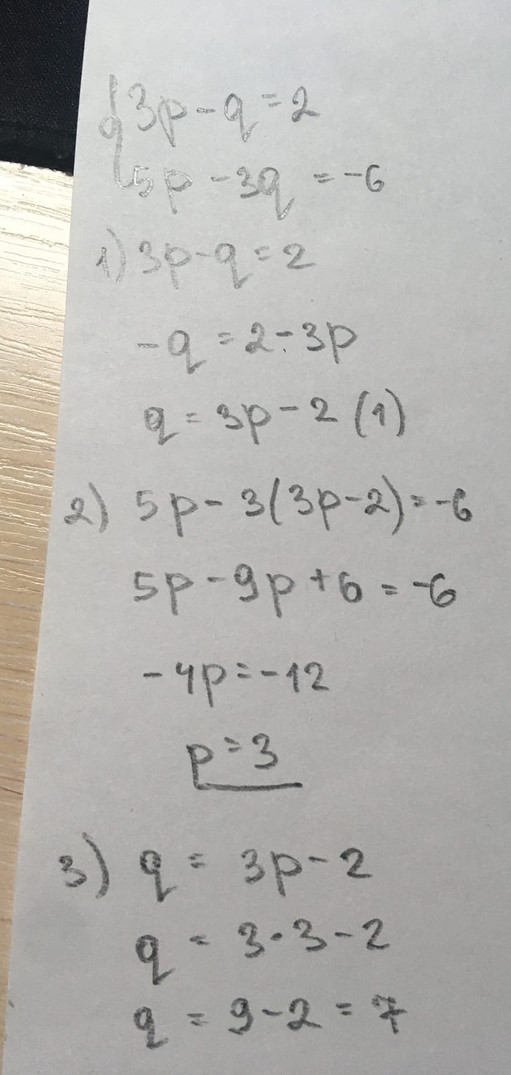 {3p - q = 2
5p - 3q = -6
1) 3p - q = 2
-q = 2 - 3p
q = 3p - 2 (1)
2) 5p - 3(3p - 2) = -6
5p - 9p + 6 = -6
-4p = -12
p = 3
3) q = 3p - 2
q = 3·3 - 2
q = 9 - 2 = 7